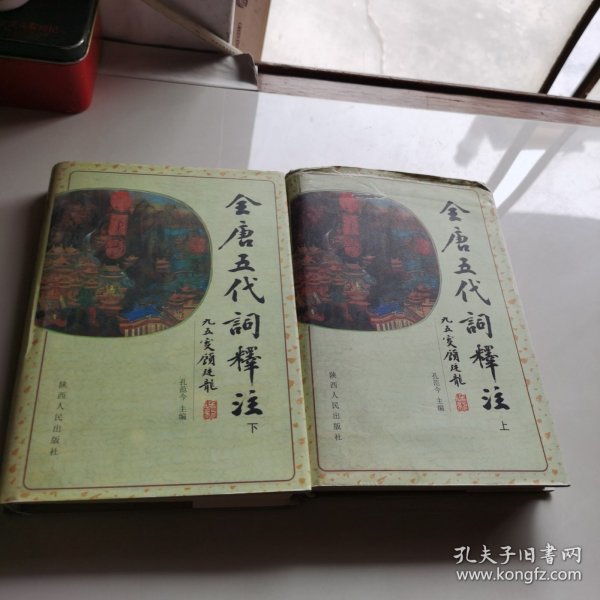 全唐五代詞釋注
九五叟顧廷龍
孔范今 主编
下
陕西人民出版社
全唐五代詞釋注
九五叟顧廷龍
孔范今 主编
上
陕西人民出版社
孔夫子旧书网
www.kongfz.com